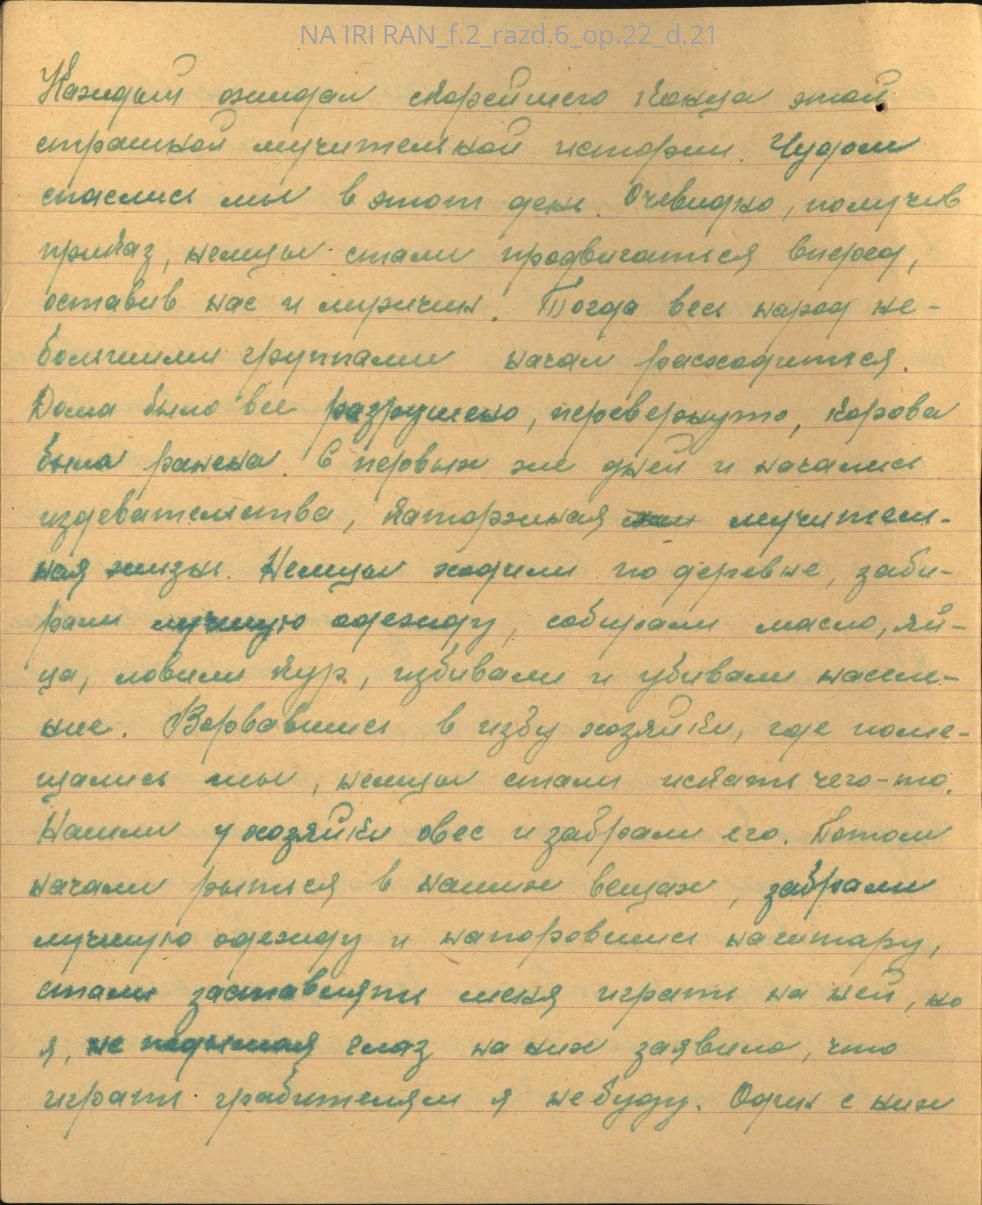 NA IRI RAN_f.2_razd.6_op.22_d.21
Каждый ожидал скорейшего конца этой
страшной мучительной истории. Чудом
спаслись мы в этот день. Очевидно, получив
приказ, немцы стали продвигаться вперед,
оставив нас и мужчин. Тогда весь народ не-
большими группами начал расходиться.
Дома было все разрушено, перевернуто, корова
была ранена. С первых же дней и начались
издевательства, каторжная мучитель-
ная жизнь. Немцы ходили по деревне, заби-
рали лучшую одежду, собирали масло, яй-
ца, ловили кур, избивали и убивали населе-
ние. Ворвавшись в избу хозяйки, где поме-
щались мы, немцы стали искать чего-то.
Нашли у хозяйки овес и забрали его. Потом
начали рыться в наших вещах, забрали
лучшую одежду и напоровшись на гитару,
стали заставлять меня играть на ней, но
я, не подымая глаз на них заявила, что
играть грабителям я не буду. Один с них